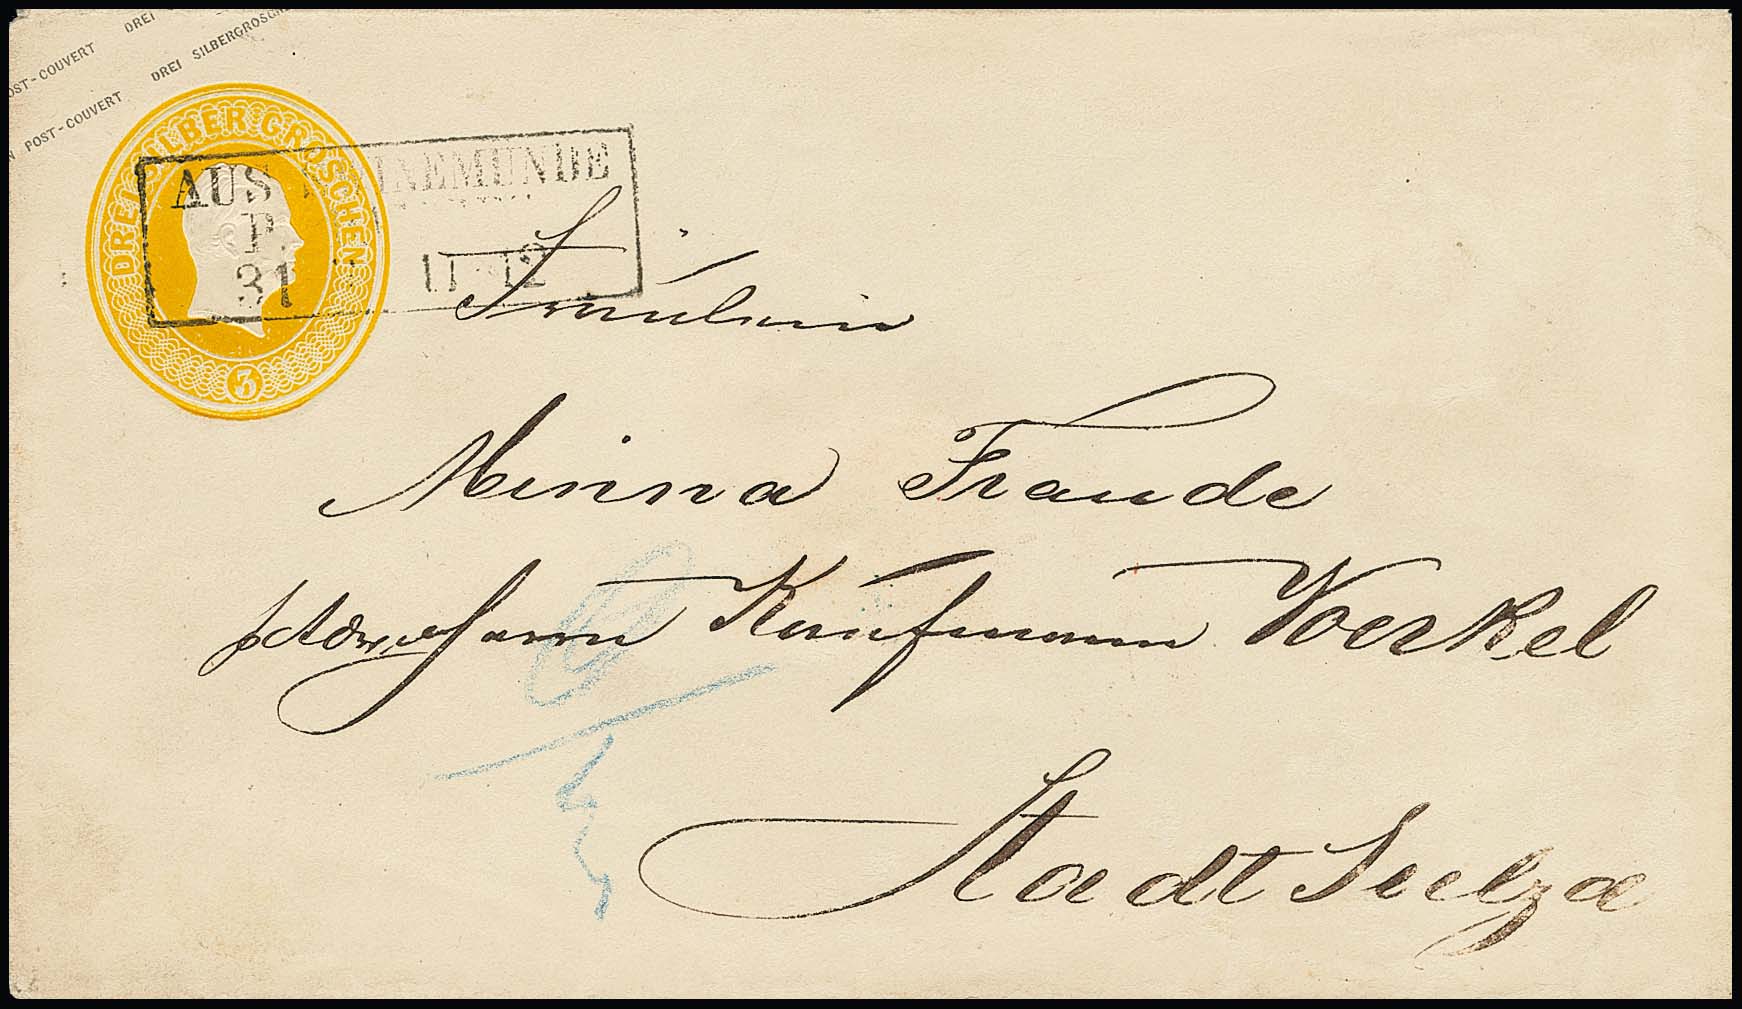 POST-COUVERT DREI
POST-COUVERT DREI SILBERGROSCHEN
DREI SILBER GROSCHEN
3
AUS SWINEMÜNDE
P
31 11-12
Fräulein
Minna Fraude
Herrn Kaufmann Werkel
Stadt Sulza